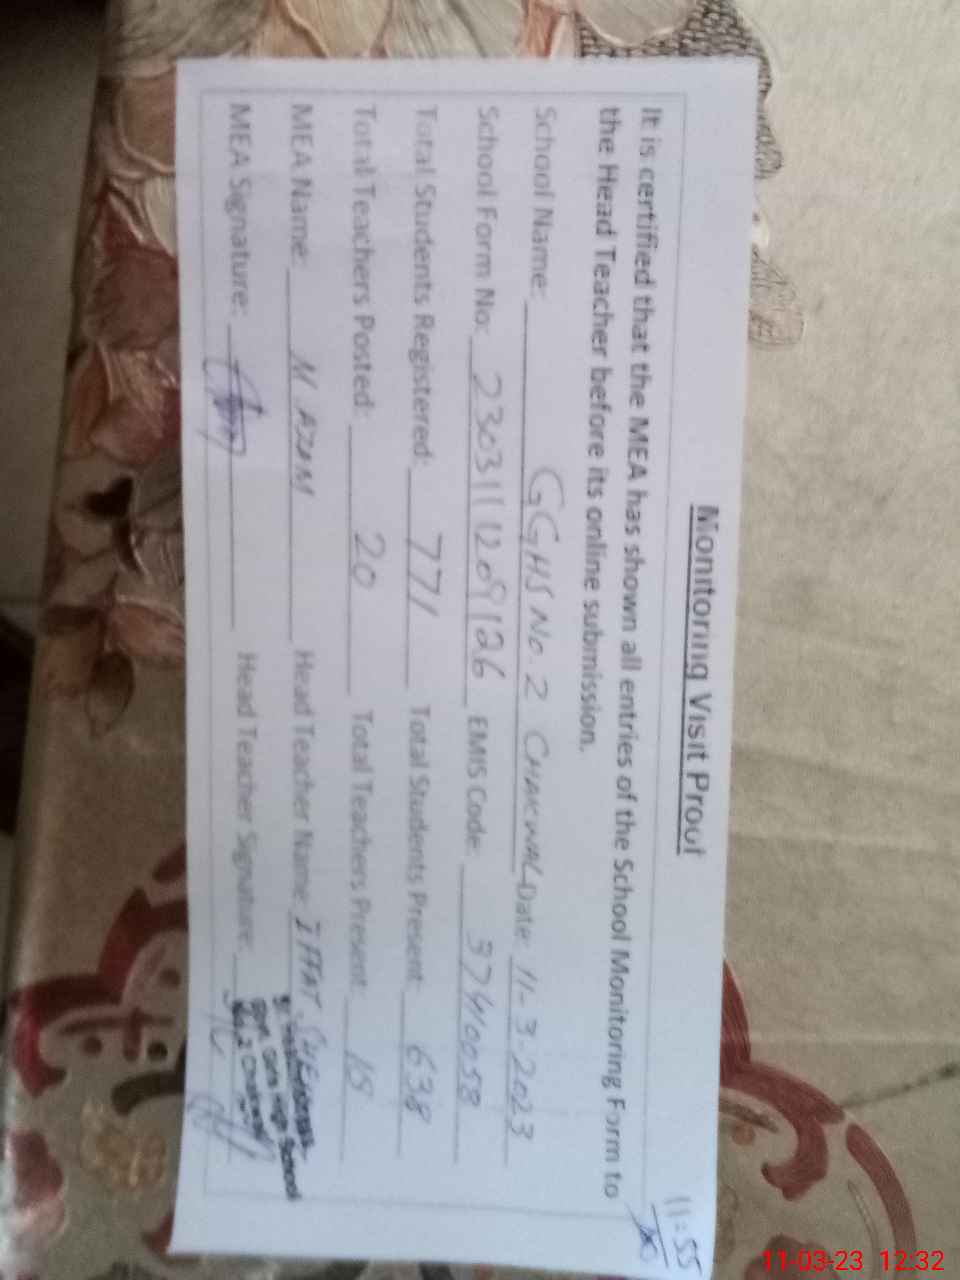 Monitoring Visit Proof
11:55
It is certified that the MEA has shown all entries of the School Monitoring Form to
the Head Teacher before its online submission.
School Name: GGHS No. 2 CHAKWAL Date: 11-3-2023
School Form No: 230311209126 EMIS Code: 37410058
Total Students Registered: 771 Total Students Present: 638
Total Teachers Posted: 20 Total Teachers Present: 18
MEA Name: M. AZAM Head Teacher Name: IFFAT
MEA Signature: Head Teacher Signature:
Govt. Girls High School
No.2 Chakwal
11-03-23 12:32